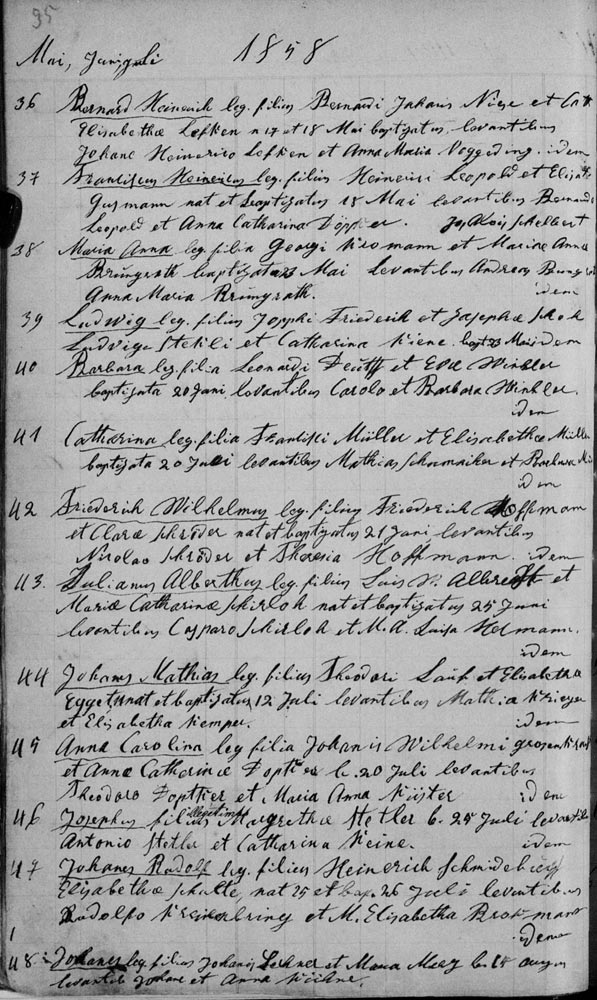 95
Mai, Juni, Juli 1858
36 Bernard Heinerich leg. filius Bernardi Johans Niese et Cath
Elisabethæ Lefken n 17 et 18 Mai baptizatus levantibus
Johane Heinerico Lefken et Anna Maria Veggeding. idem
37 Franciscus Heinericus leg. filius Heinerici Leopold et Elis
Gusmann nat et baptizatus 18 Mai levantibus Bernard
Leopold et Anna Catharina Döpker. Jos Alois Schelbert
38 Maria Anna leg filia Georgi Kromann et Mariæ Annæ
Brüngrath baptizata 23 Mai levantibus Andreas
Anna Maria Brüngrath. idem
39 Ludwig leg. filius Josephi Friederich et Josephæ Schoh
Ludvige Stekli et Catharina Kiene. bapt 23 Mai idem
40 Barbara leg. filia Leonardi et Eva Winkler
baptizata 20 Juni levantibus Carolo et Barbara Winkler.
idem
41 Catharina leg. filia Francisci Müller et Elisabethæ Müller
baptizata 20 Juli levantibus Mathias et Barbara
idem
42 Friederich Wilhelmus leg. filius Friederich Hoffmann
et Claræ Schröder nat et baptizatus 21 Juni levantibus
Nicolao Schröder et Theresia Hoffmann. idem
43. Julianus Alberthus leg. filius Luis V. Albrecht et
Mariæ Catharinæ Schirloh nat et baptizatus 25 Juni
levantibus Casparo Schirloh et M. A. Luisa Hermann.
idem
44 Johans Mathias leg. filius Theodori et Elisabetha
nat et baptizatus 12 Juli levantibus Mathia Krieger
et Elisabetha Kemper. idem
45 Anna Carolina leg filia Johanis Wilhelmi
et Annæ Catharinæ b. 20 Juli levantibus
Theodoro et Maria Anna Küster idem
46 Josephus filius illegitimus Margrethæ Stetler b. 25 Juli levantibus
Antonio Stetler et Catharina Keine. idem
47 Johanes Rudolf leg. filius Heinerich
Elisabethæ Schulte, nat 25 et bap. 26 Juli levantibus
Rudolfo et M. Elisabetha
idem
1
48 Johanes leg. filius Johanis Lechner et Maria b. 15
levantib Johane et Anna Kühne.